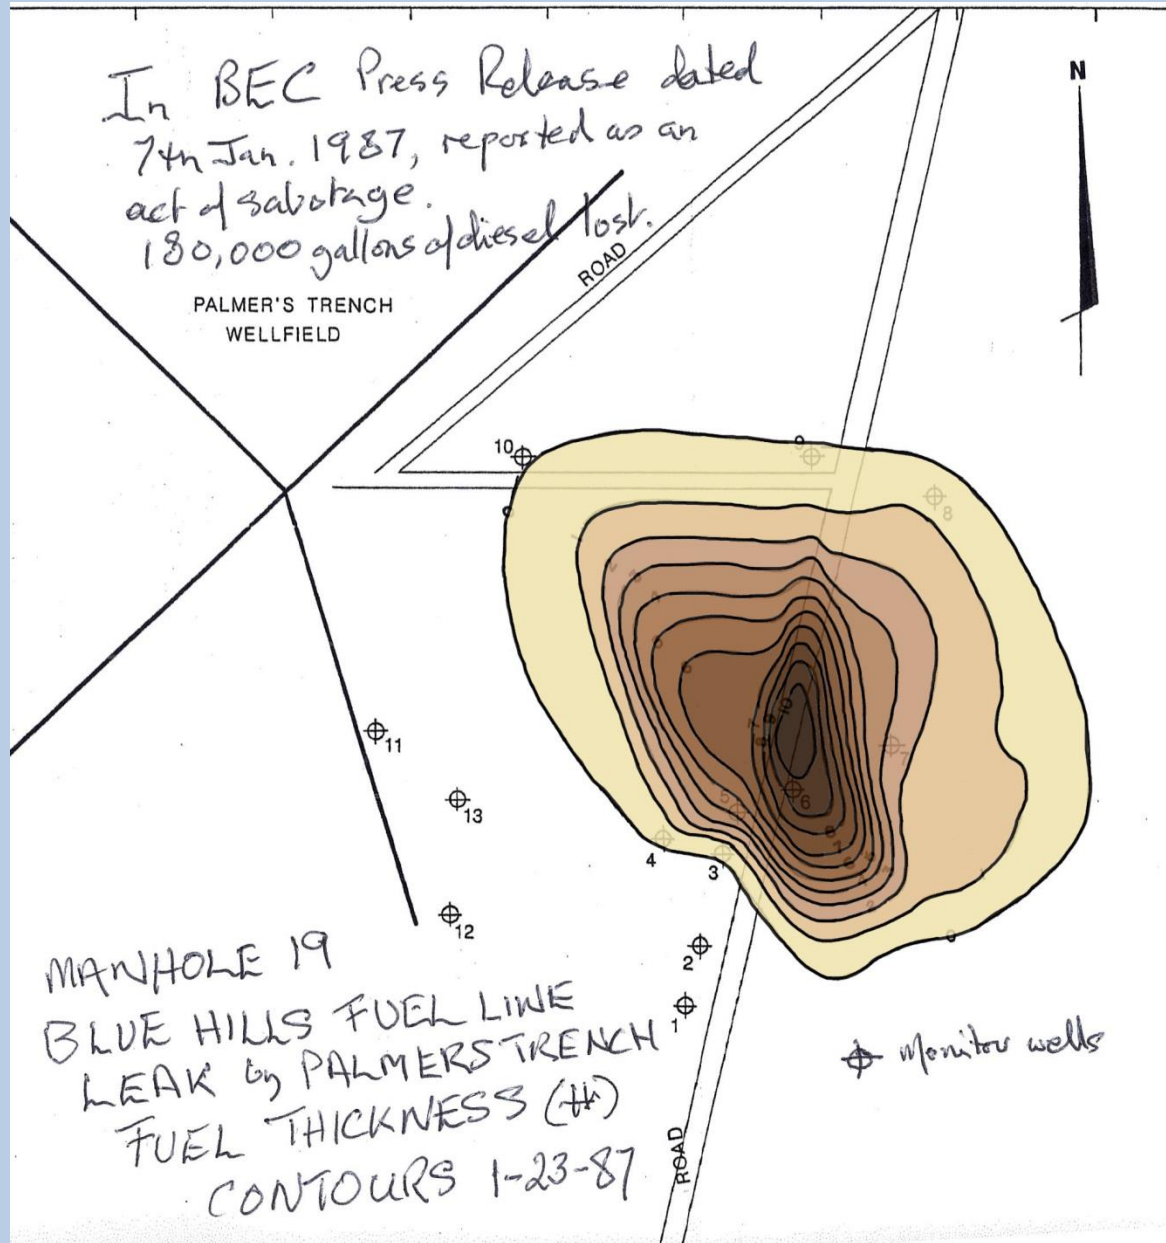 In BEC Press Release dated
7th Jan. 1987, reported as an
act of sabotage.
180,000 gallons of diesel lost.
N
ROAD
PALMER'S TRENCH
WELLFIELD
10
9
8
0
1
2
3
4
5
6
7
8
9
10
7
5
6
4
3
11
13
12
2
1
8
7
6
5
4
3
2
0
MANHOLE 19
BLUE HILLS FUEL LINE
LEAK by PALMERS TRENCH
FUEL THICKNESS (ft)
CONTOURS 1-23-87
Monitor wells
ROAD